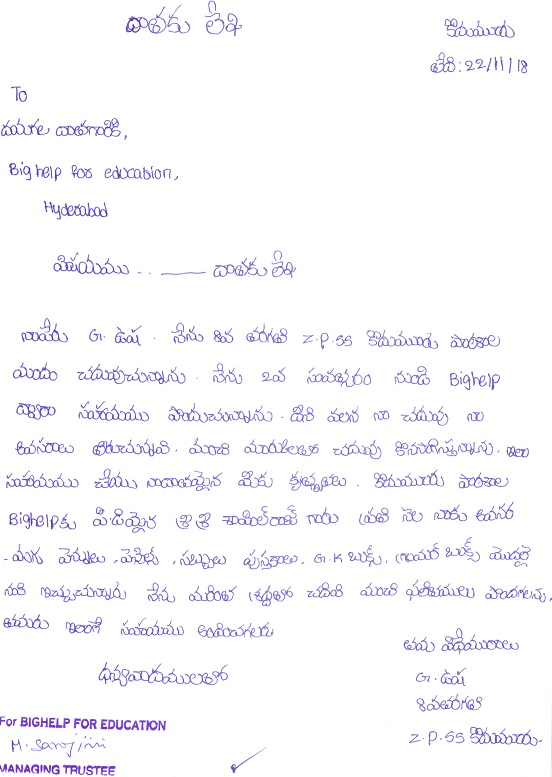 దాతకు లేఖ
కొదుమూరు
తేది: 22/11/18
To
దాతగారికి,
Big help for education,
Hyderabad
విషయము .. —— దాతకు లేఖ
నాపేరు G. ఉష. నేను 8వ తరగతి Z.P.SS పాఠశాల
నందు చదువుచున్నాను. నేను 2వ సంవత్సరం నుండి Bighelp
ద్వారా సహాయము పొందుచున్నాను. దీని వలన నా చదువు నా
అవసరాలు తీరుచున్నవి. మంచి మార్కులతో చదువు కొనసాగిస్తున్నాను. ఇలా
సహాయము చేయు మీకు కృతజ్ఞతలు. పాఠశాల
Bighelpకు శ్రీ శ్రీ గారు ప్రతి నెల నాకు అవసర
మగు పెన్నులు, పెన్సిల్స్, సబ్బులు పుస్తకాలు, G.K బుక్స్, గ్రామర్ బుక్స్ మొదలై
నవి ఇచ్చుచున్నారు నేను మరింత శ్రద్ధతో చదివి మంచి ఫలితములు పొందగలను.
తమరు ఇలాగే సహాయము అందించగలరు
ధన్యవాదములతో
తమ విధేయురాలు
G. ఉష
8వతరగతి
Z.P.SS
For BIGHELP FOR EDUCATION
M. Sarojini
MANAGING TRUSTEE